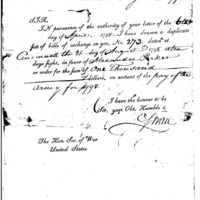 SIR,
IN pursuance of the authority of your letter of the
day of April 1798. I have drawn a duplicate
set of bills of exchange on you, No. 273 dated at
Cincinnati the 21 day of August 1798 at ten
days sight, in favor of Alexander Parker
or order for the sum of One Thousand
Dollars, on account of the pay of the
army for 1798.
I have the honour to be
Sir, your Obt. Humble
The Hon. Sec. of War
United States